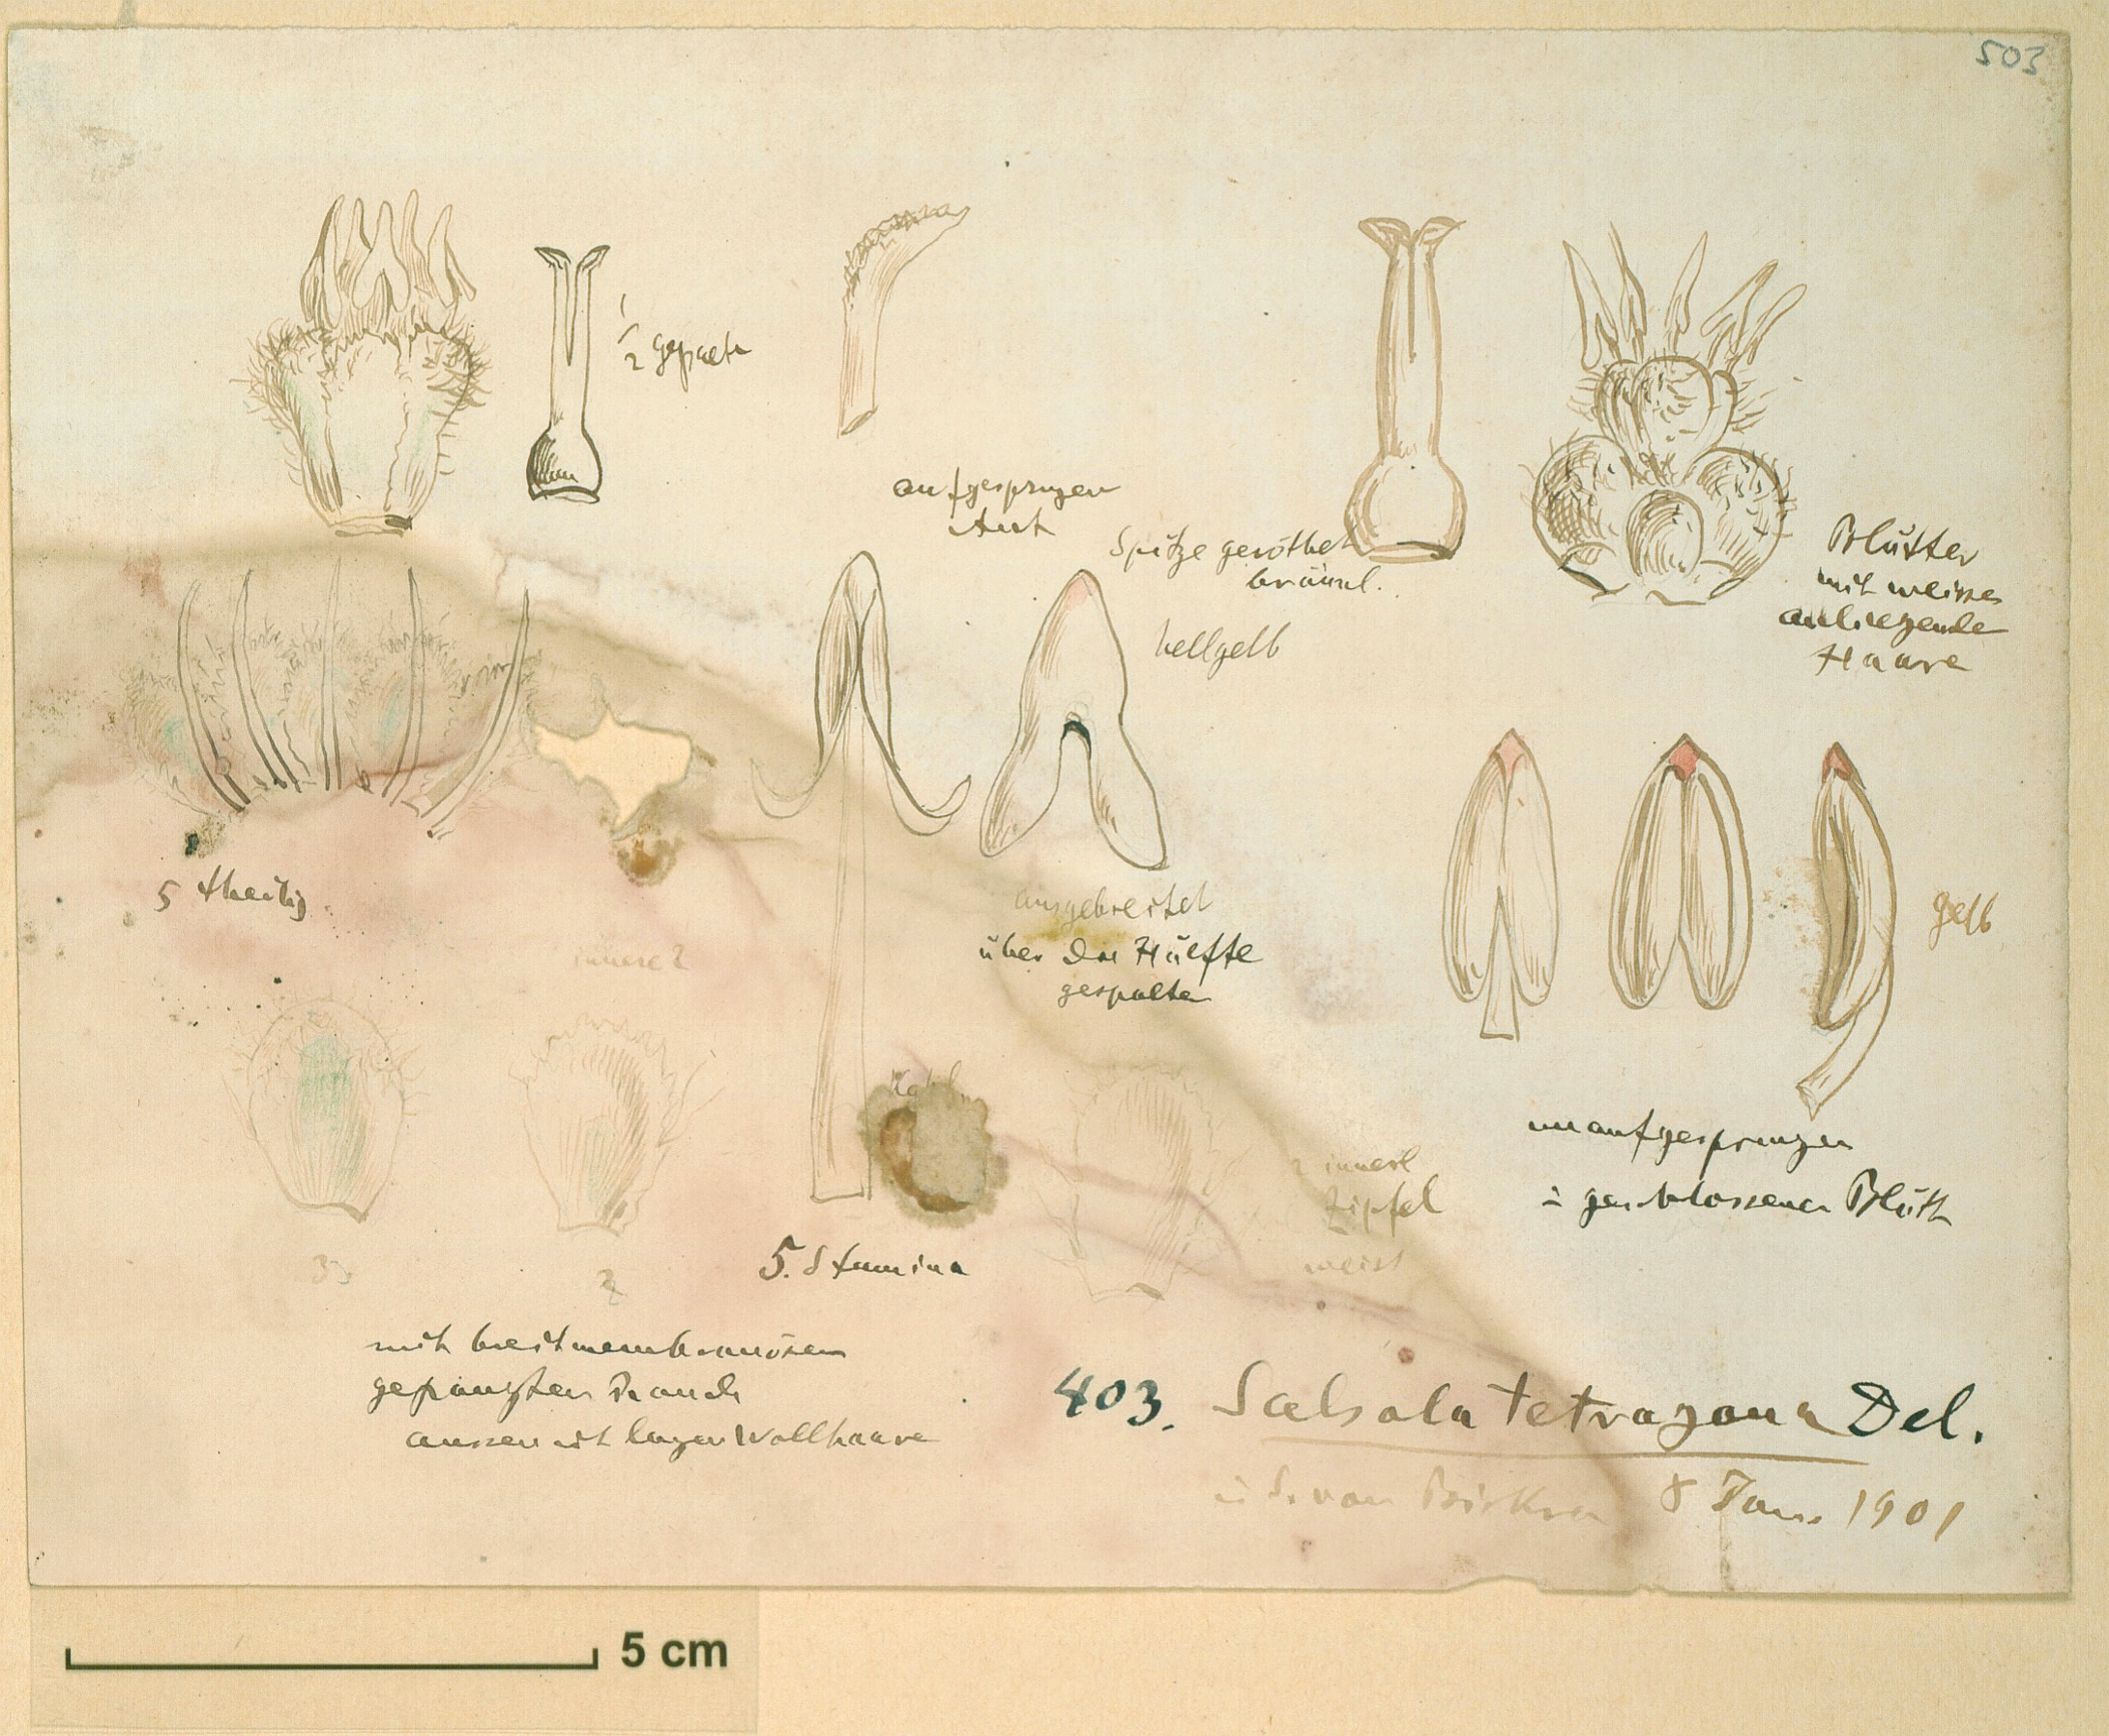 503
1/2 gespalten
aufgesprungen
Anth
Spitze geröthet
bräunl.
hellgelb
Blätter
mit weissen
anliegende
Haare
5 theilig
ausgebreitet
über die Hälfte
gespalten
gelb
innere 2
unaufgesprungen
i geschlossener Blüth
2 innere
Zipfel
weiss
3
2
5. Stamina
mit breitmembranösem
gefranzten Rande
aussen mit langen Wollhaare
403. Salsola tetragona Del.
S. von Biskra 8 Jan. 1901
5 cm